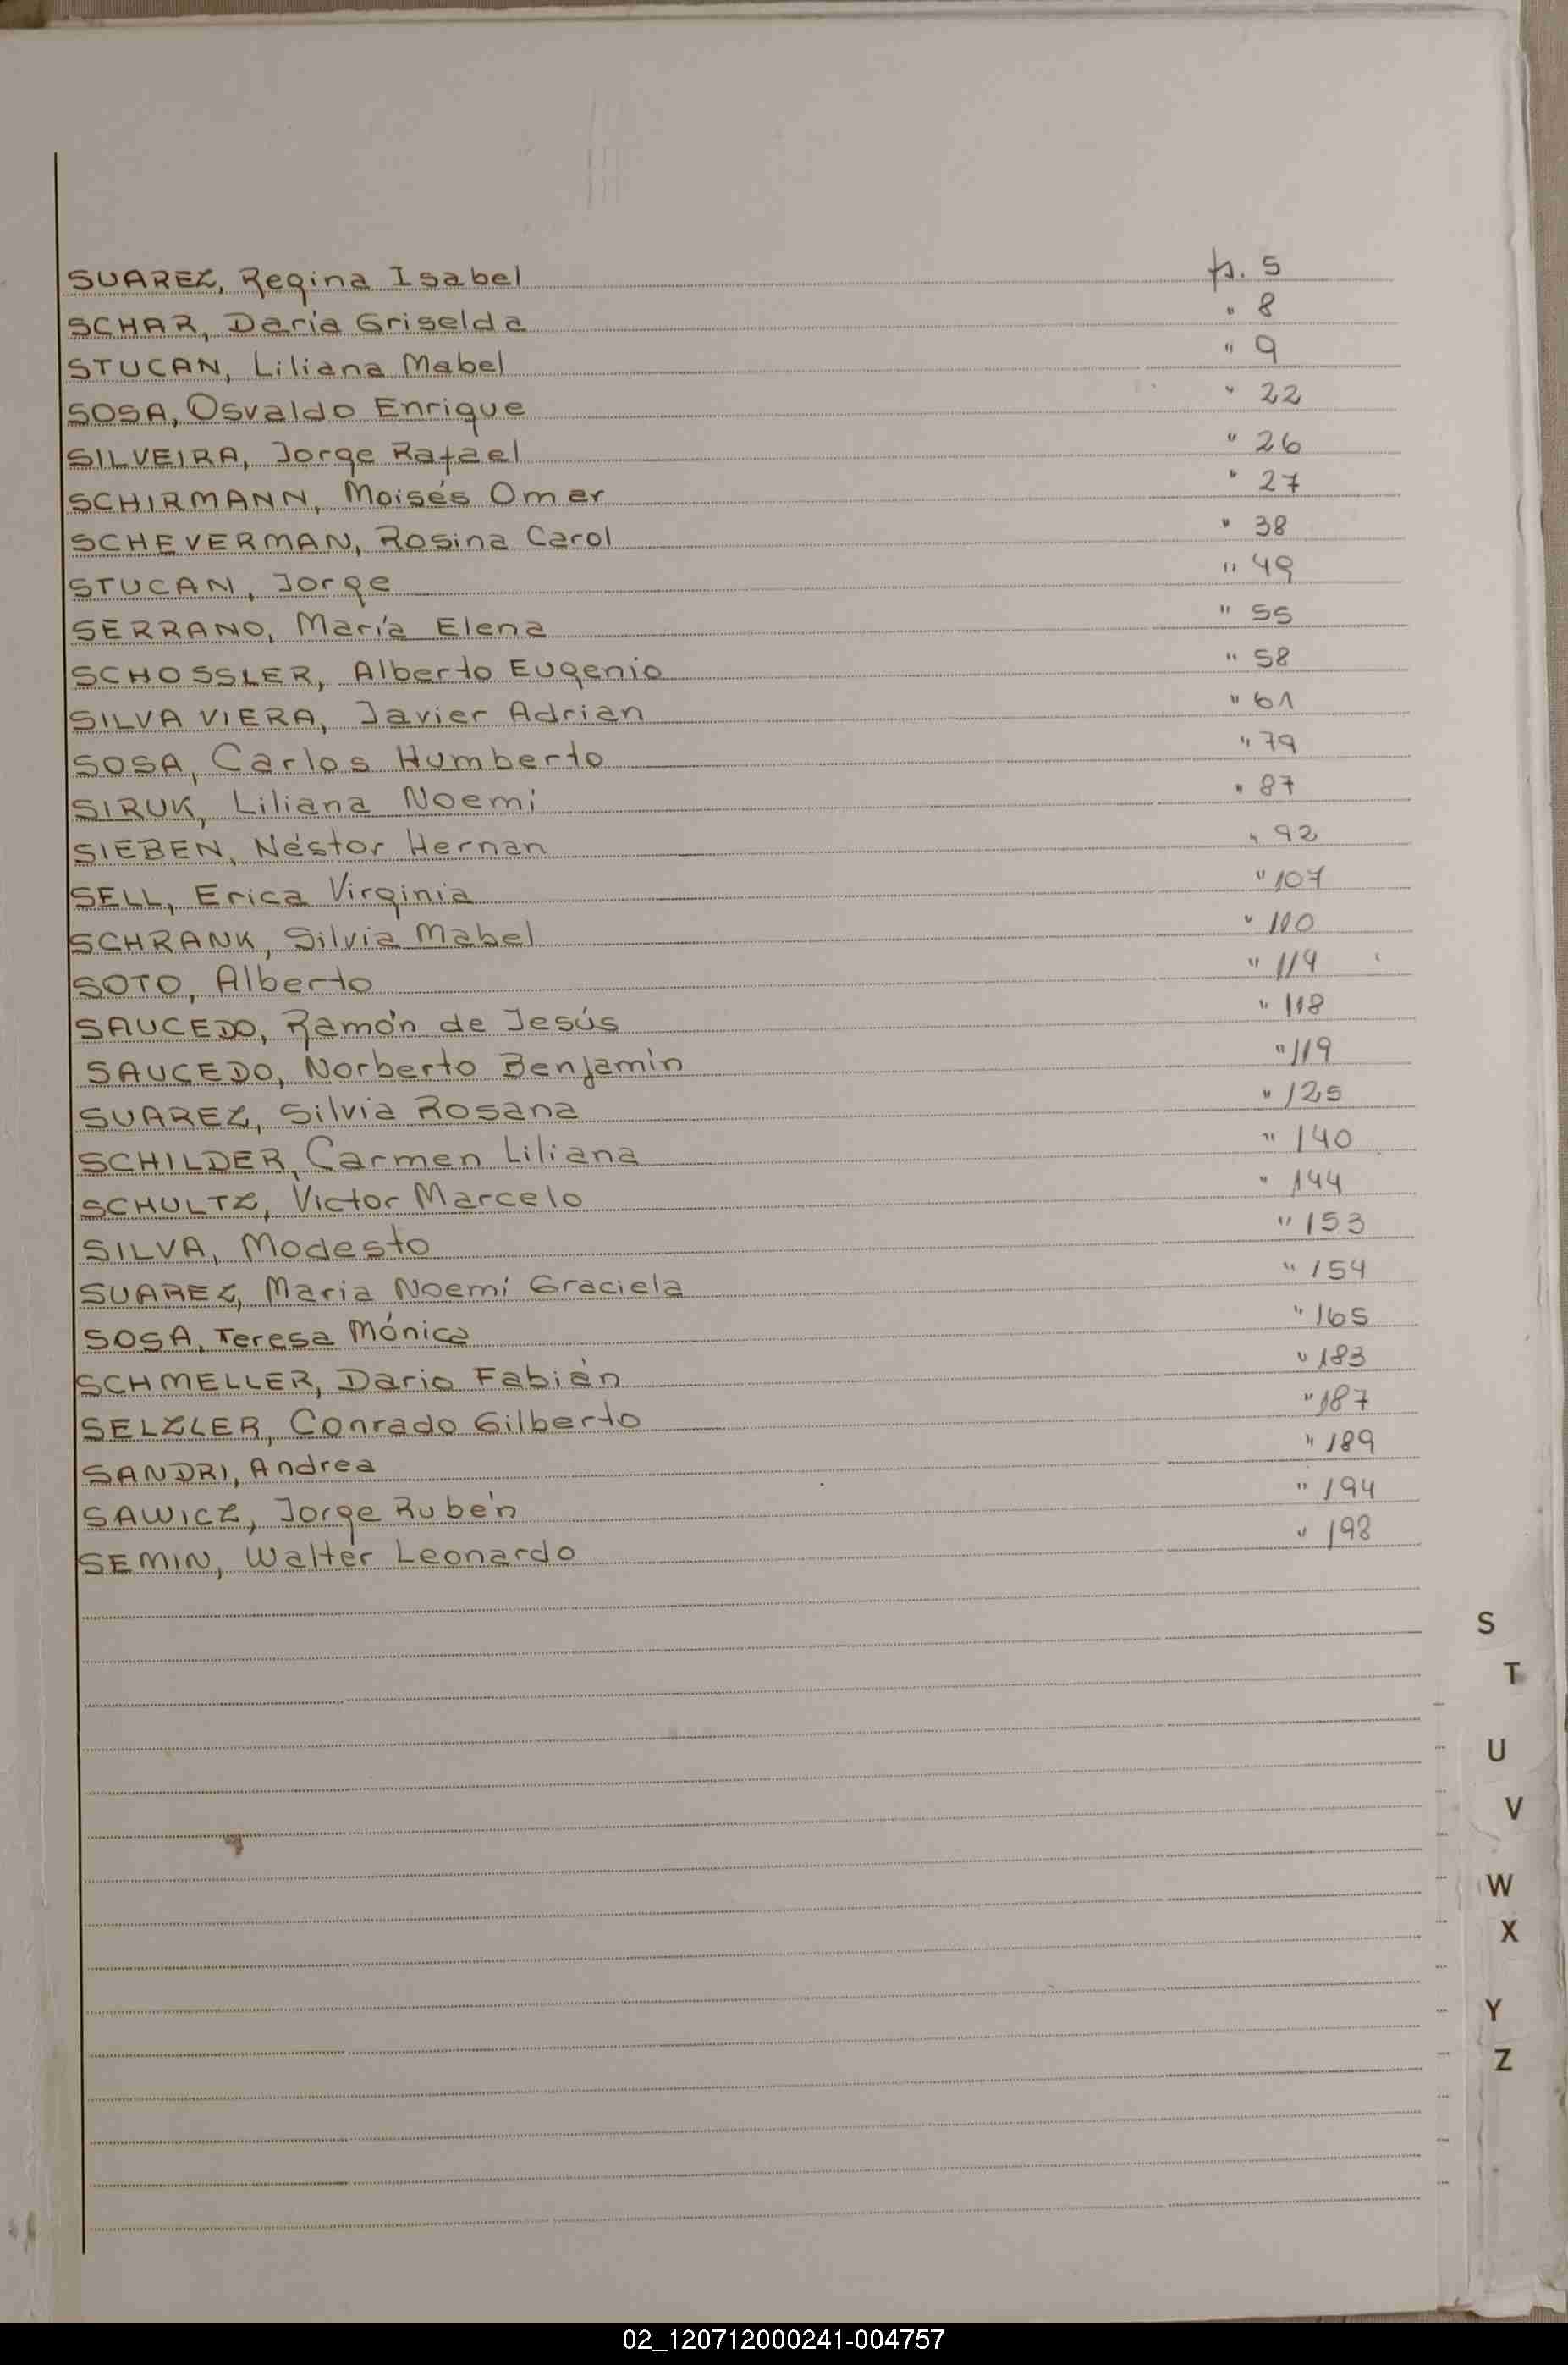 SUAREZ, Regina Isabel p. 5
SCHAR, Daría Griselda " 8
STUCAN, Liliana Mabel " 9
SOSA, Osvaldo Enrique " 22
SILVEIRA, Jorge Rafael " 26
SCHIRMANN, Moisés Omar " 27
SCHEVERMAN, Rosina Carol " 38
STUCAN, Jorge " 49
SERRANO, María Elena " 55
SCHOSSLER, Alberto Eugenio " 58
SILVA VIERA, Javier Adrian " 61
SOSA, Carlos Humberto " 79
SIRUK, Liliana Noemí " 87
SIEBEN, Néstor Hernan " 92
SELL, Erica Virginia " 107
SCHRANK, Silvia Mabel " 110
SOTO, Alberto " 114
SAUCEDO, Ramón de Jesús " 118
SAUCEDO, Norberto Benjamín " 119
SUAREZ, Silvia Rosana " 125
SCHILDER, Carmen Liliana " 140
SCHULTZ, Victor Marcelo " 144
SILVA, Modesto " 153
SUAREZ, Maria Noemí Graciela " 154
SOSA, Teresa Mónica " 165
SCHMELLER, Dario Fabián " 183
SELZLER, Conrado Gilberto " 187
SANDRI, Andrea " 189
SAWICZ, Jorge Rubén " 194
SEMIN, Walter Leonardo " 198
S
T
U
V
W
X
Y
Z
02_120712000241-004757